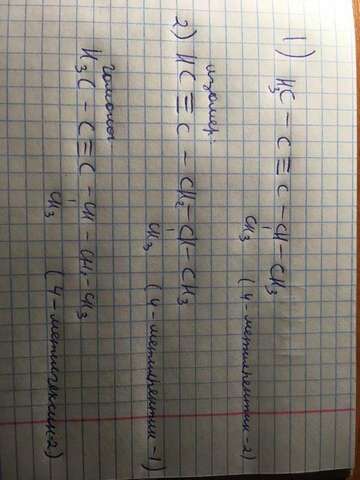 1) H₃C – C ≡ C – CH – CH₃
CH₃ (4-метилпентин-2)
изомер:
2) HC ≡ C – CH₂ – CH – CH₃
CH₃ (4-метилпентин-1)
гомолог
H₃C – C ≡ C – CH – CH₂ – CH₃
CH₃ (4-метилгексин-2)